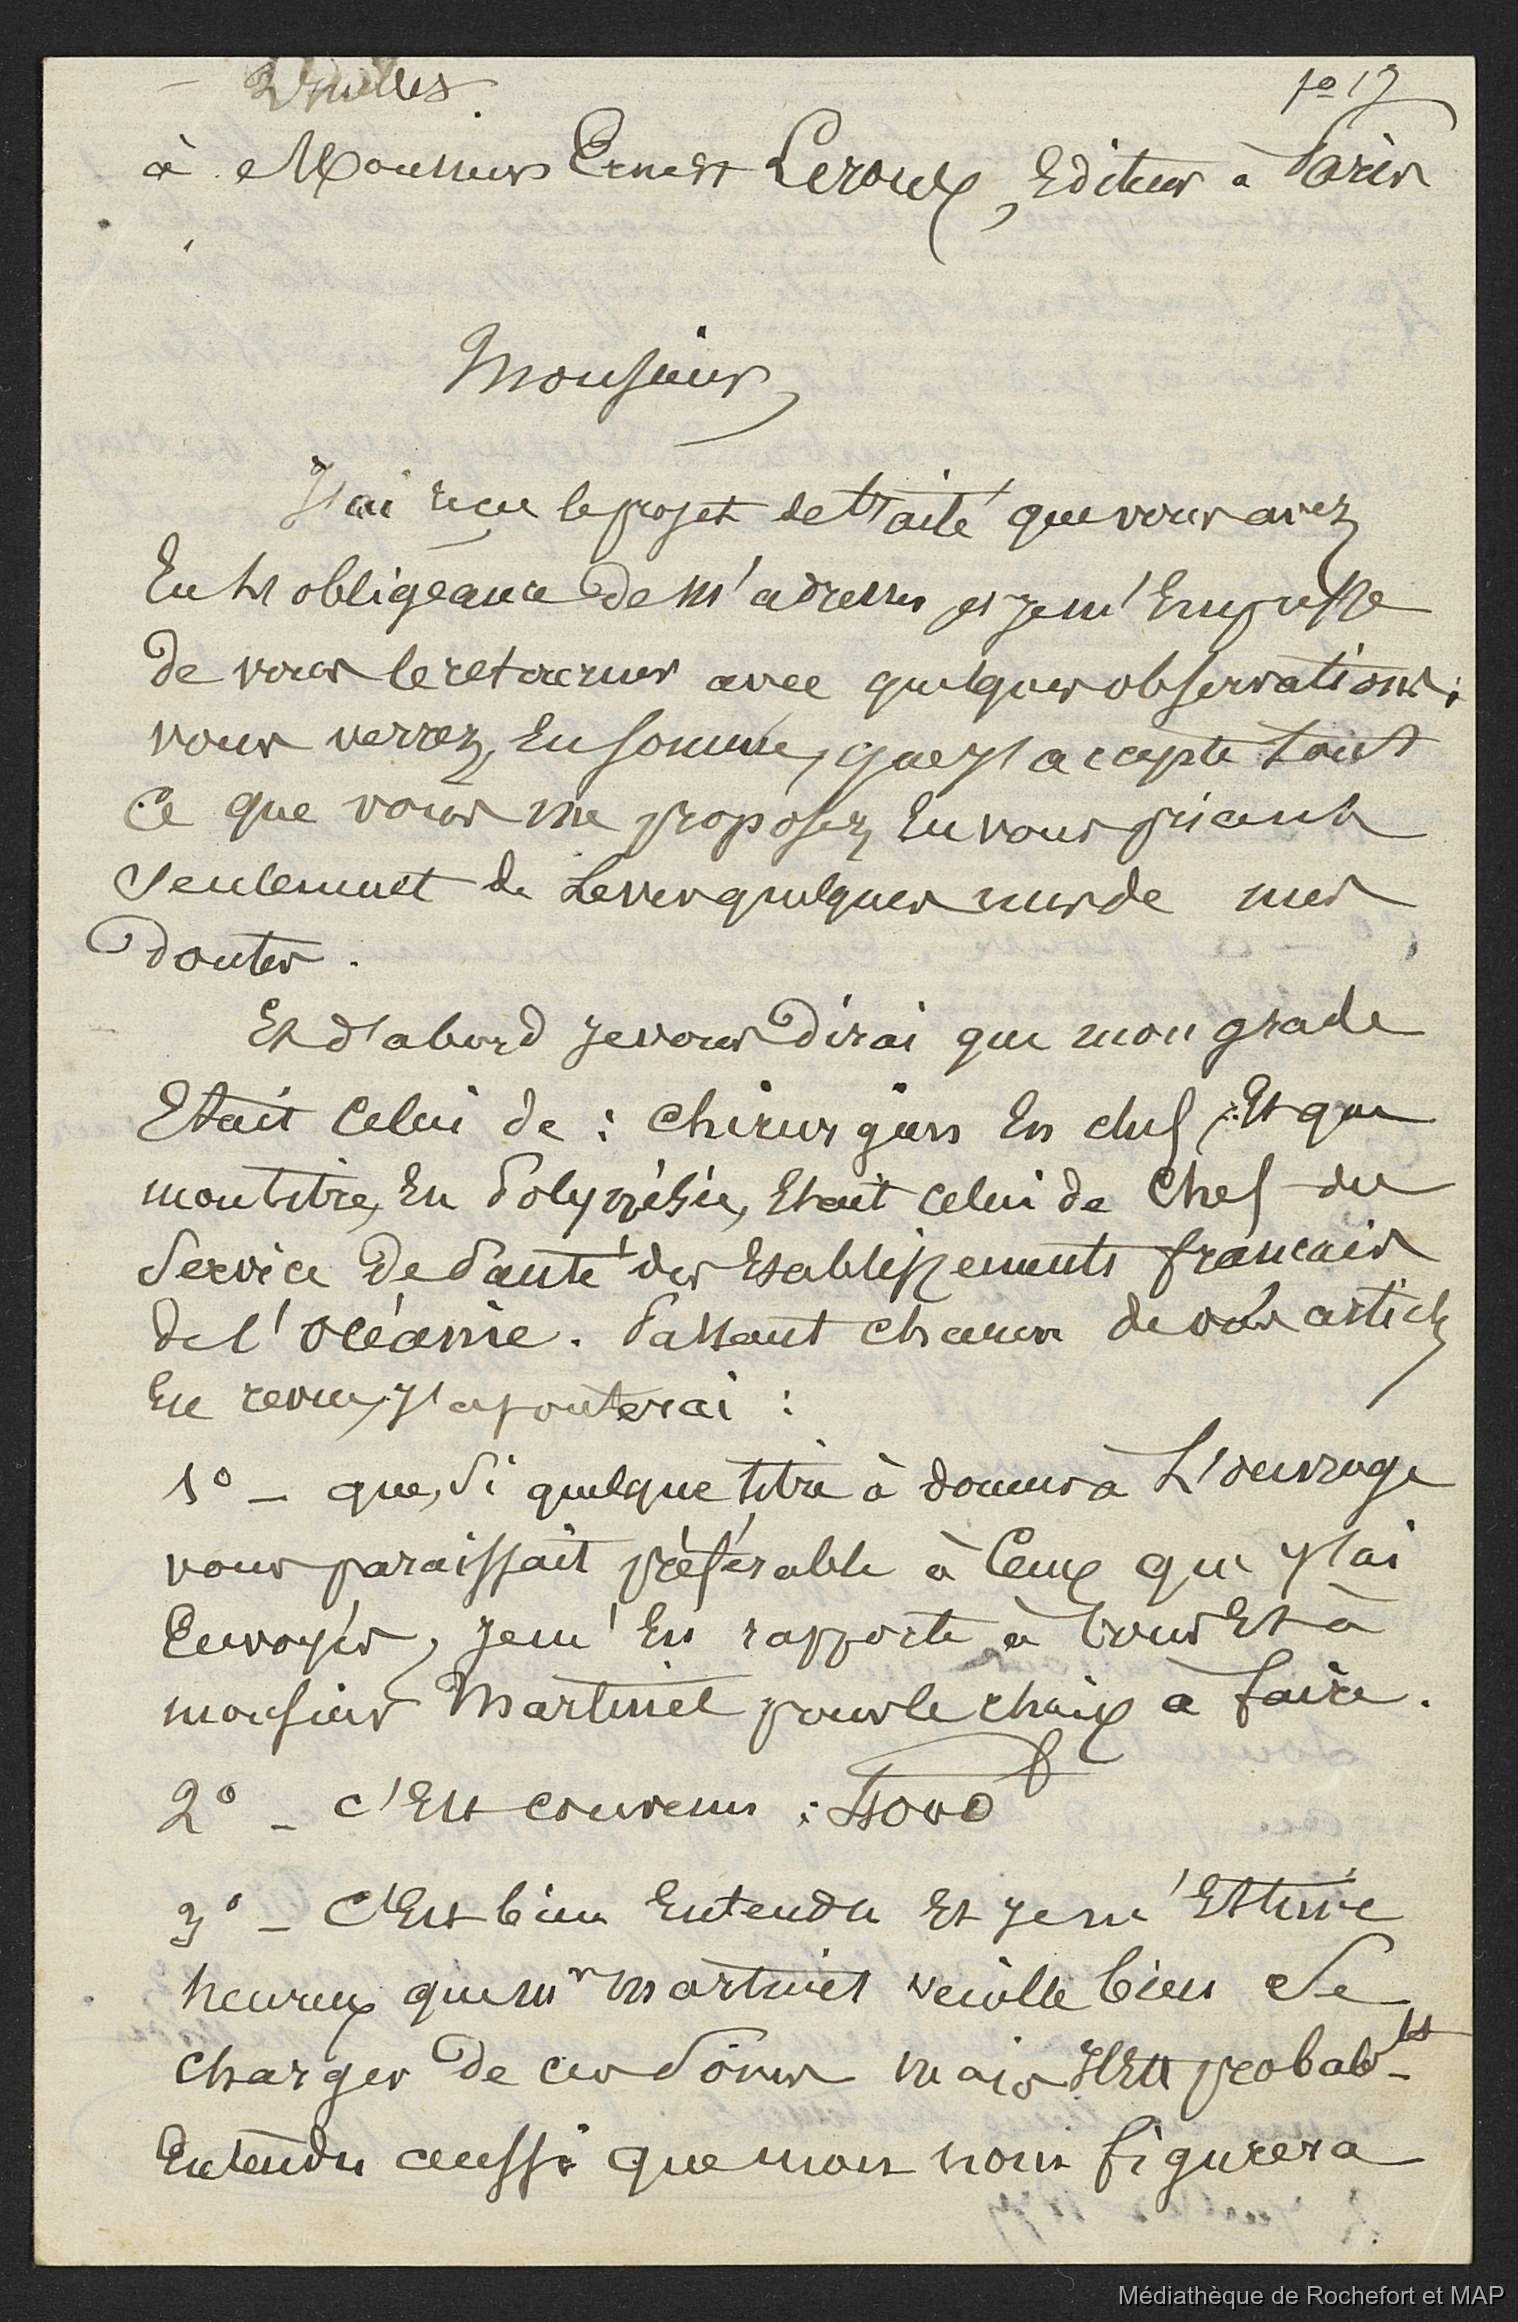 fo 17
à Monsieur Ernest Leroux, Editeur à Paris
Monsieur,
J'ai reçu le projet de traité que vous avez
Eu l'obligeance de m'adresser et je m'Empresse
de vous le retourner avec quelques observations :
vous verrez, En somme, que j'accepte tout
ce que vous me proposez, En vous priant
seulement de lever quelques uns de mes
doutes.
Et d'abord je vous dirai que mon grade
Etait celui de : chirurgien En chef, Et que
mon titre, En Polynésie, Etait celui de Chef du
Service de Santé des Etablissements français
de l'océanie. Passant chacun de vos articles
En revue, j'ajouterai :
1º — que, si quelque titre à donner à L'ouvrage
vous paraissait préférable à Ceux que j'ai
Envoyés, je m'En rapporte à vous Et à
monsieur Martinet pour le choix à faire.
2º — c'Est convenu :
3º — C'Est bien Entendu Et je m'Estime
heureux que Mr Martinet veuille bien se
charger de ces soins mais il Est probablt
Entendu aussi que mon nom figurera
Médiathèque de Rochefort et MAP